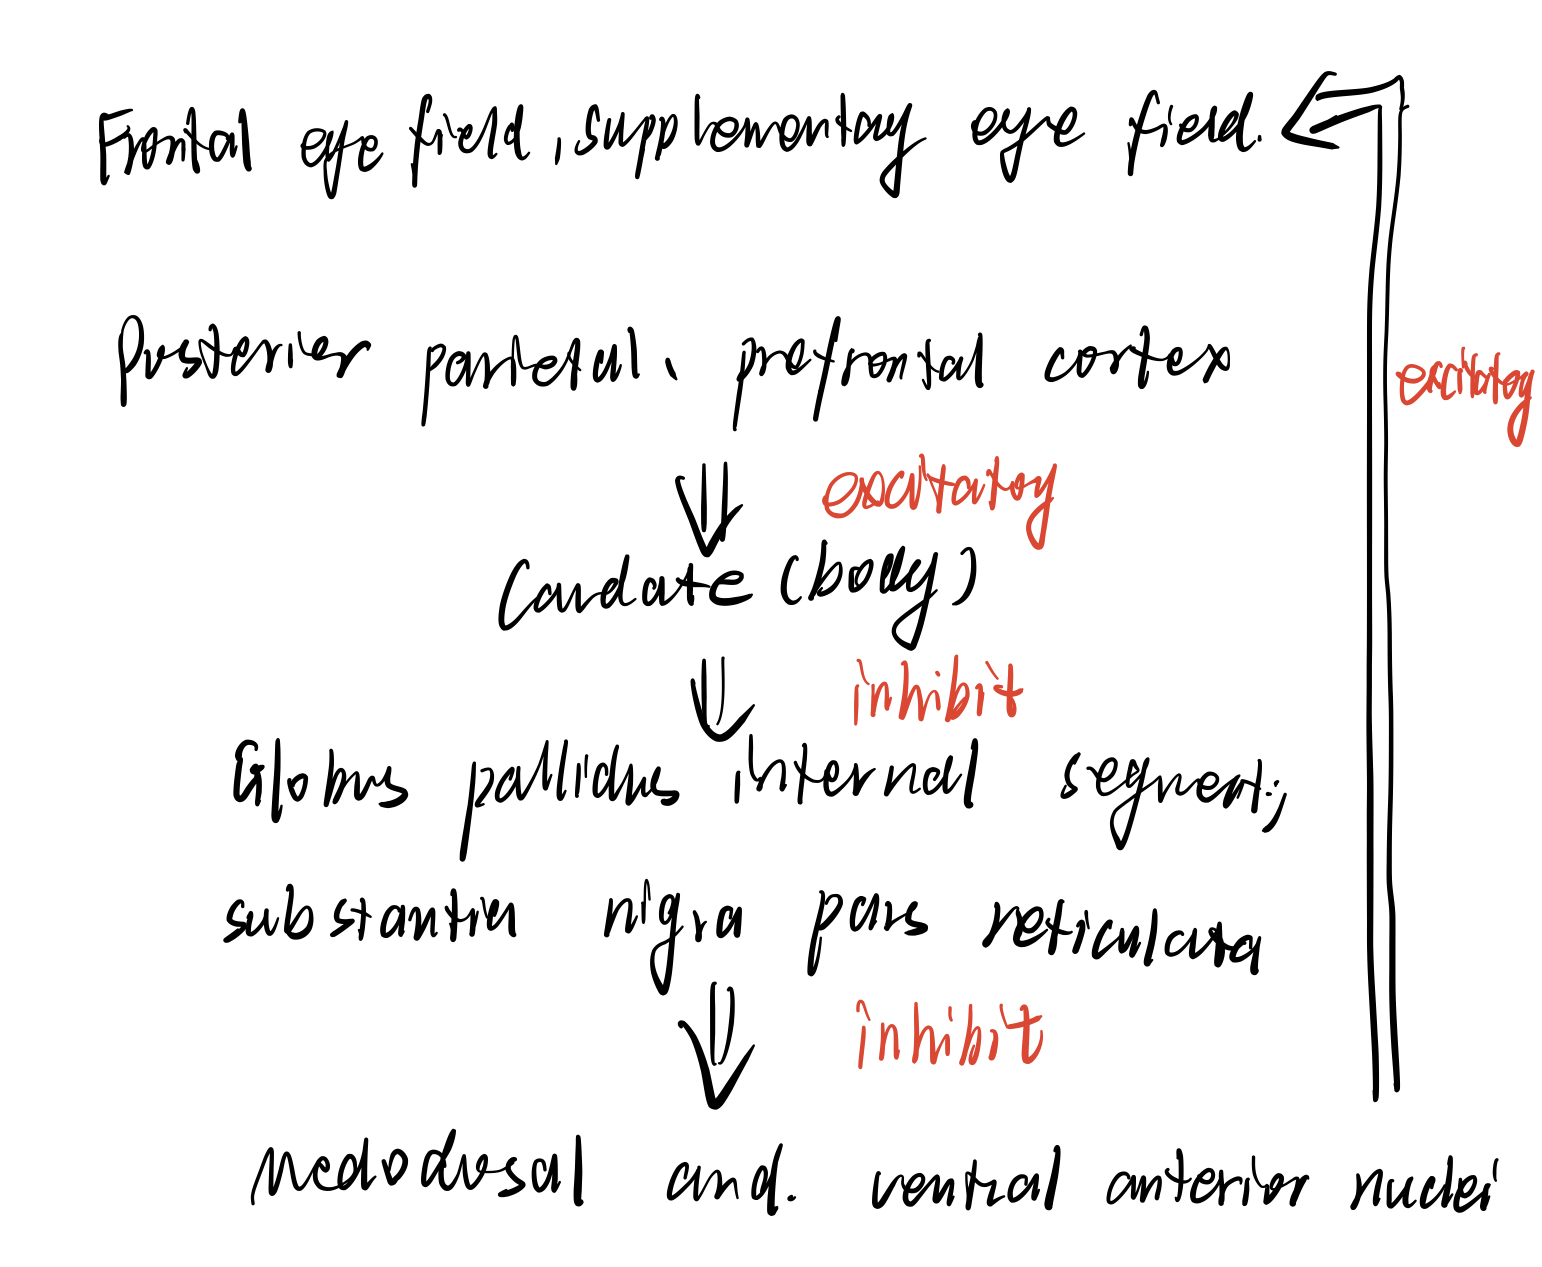 Frontal eye field, supplementary eye field.
Posterier parietal, prefrontal cortex
excitatory
excitatory
Caudate (body)
inhibit
Globus pallidus internal segment;
substantia nigra pars reticulata
inhibit
Medodosal and. ventral anterior nuclei